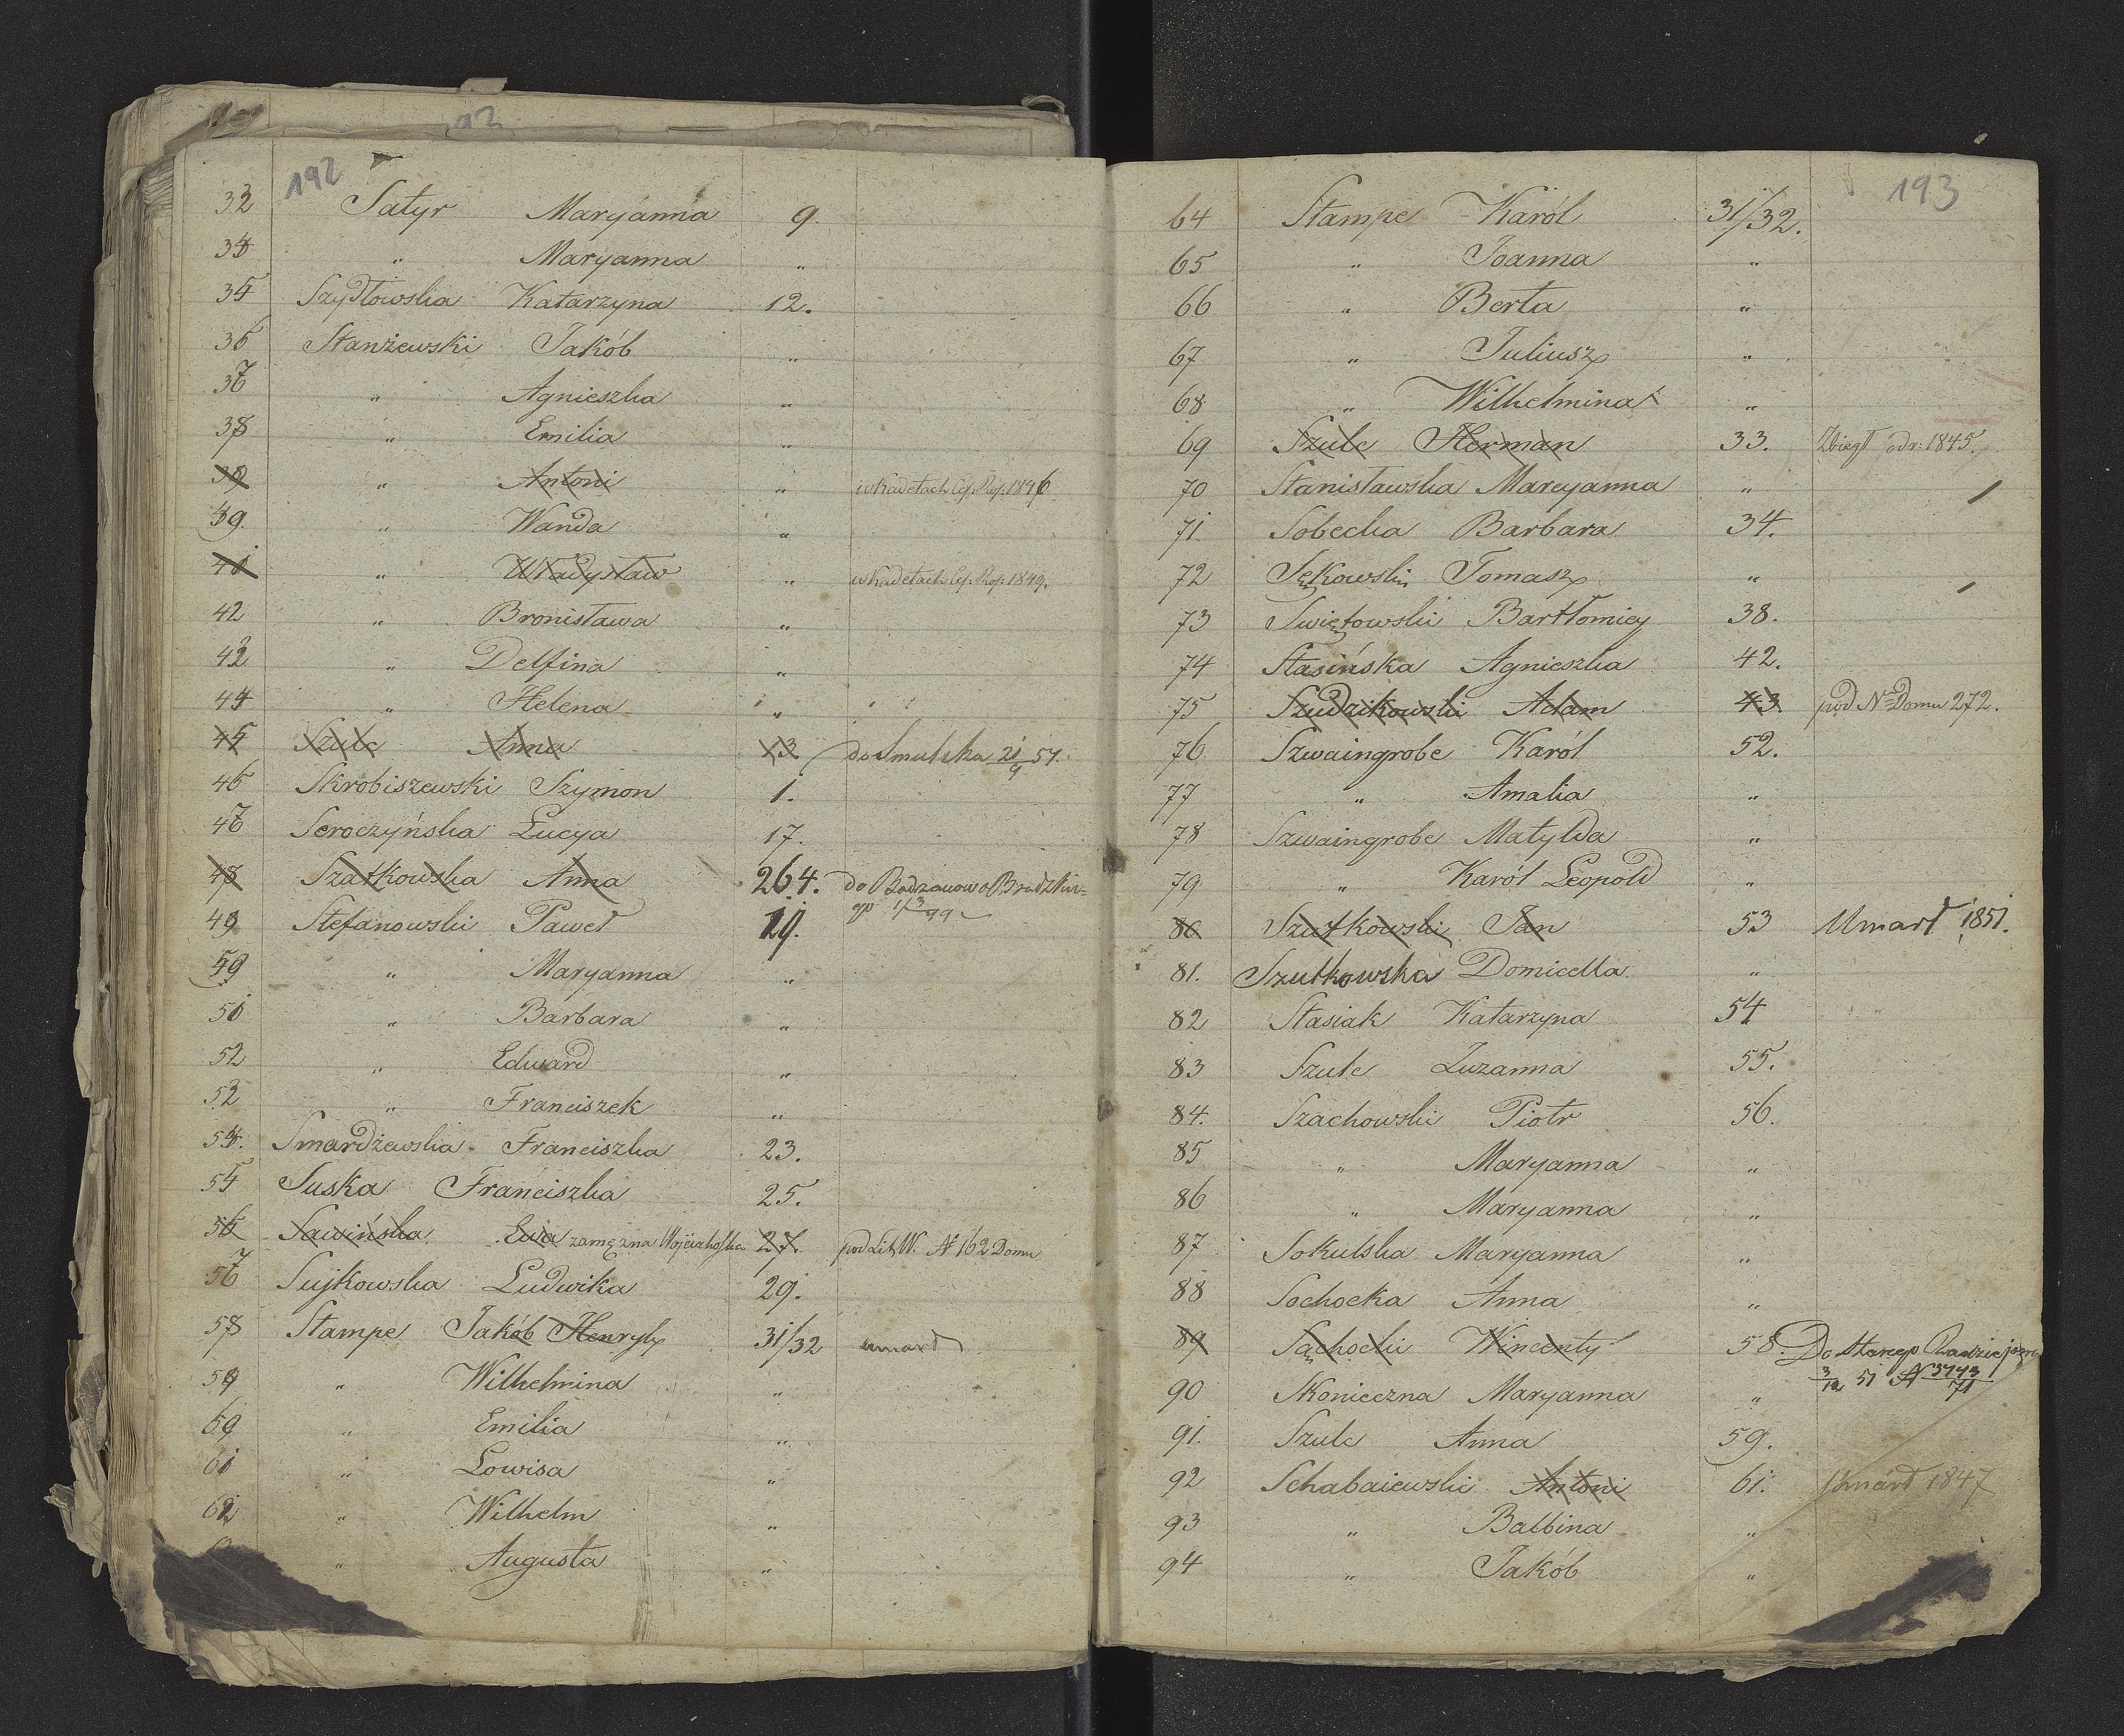 192
32 Satyr Maryanna 9.
34 " Maryanna "
35 Szydłowska Katarzyna 12.
36 Stanżewski Jakób "
37 " Agnieszka "
38 " Emilia "
39 " Antoni " w Kadetach Ces. Ros. 1846
" Wanda "
41 " Władysław " w Kadetach Ces. Ros. 1849.
42 " Bronisława "
43 " Delfina "
44 " Helena "
45 Szulc Anna 13 do Smulska 21/9 51.
46 Skrobiszewski Szymon 1.
47 Seroczyńska Lucya 17.
48 Szatkowska Anna 264. do
49 Stefanowski Paweł 19.
" Maryanna "
51 " Barbara "
52 " Edward "
53 " Franciszek "
54. Smardzewska Franciszka 23.
55 Suska Franciszka 25.
56 Sawińska Ewa zamęzna 27. pod Lit. W. N 162 Domu
57 Sujkowska Ludwika 29.
58 Stampe Jakób Henryk 31/32 umarł
59 " Wilhelmina "
60 " Emilia "
61 " Lowisa "
62 " Wilhelm "
" Augusta "
193
64 Stampe Karól 31/32.
65 " Joanna "
66 " Berta "
67 " Juliusz "
68 " Wilhelmina "
69 Szulc Herman 33. Zbiegł od r: 1845.
70 Stanisławska Maryanna "
71 Sobecka Barbara 34.
72 Sękowski Tomasz "
73 Swiętowski Bartłomiey 38.
74 Stasińska Agnieszka 42.
75 Szudzikowski Adam 43. pod Nr Domu 272.
76 Szwaingrobe Karól 52.
77 " Amalia "
78 Szwaingrobe Matylda "
79 " Karól Leopold "
80 Szutkowski Jan 53 Umarł 1851.
81. Szutkowska Domicella "
82 Stasiak Katarzyna 54
83 Szulc Zuzanna 55.
84. Szachowski Piotr 56.
85 " Maryanna "
86 " Maryanna "
87 Sokulska Maryanna "
88 Sochocka Anna "
89 Sąchocki Wincenty 58. Do starego Radziejowa
3/12 51 N 3773/71
90 Skonieczna Maryanna "
91. Szulc Anna 59.
92 Schabaiewski Antoni 61. Umarł 1847
93 " Balbina "
94 " Jakób "